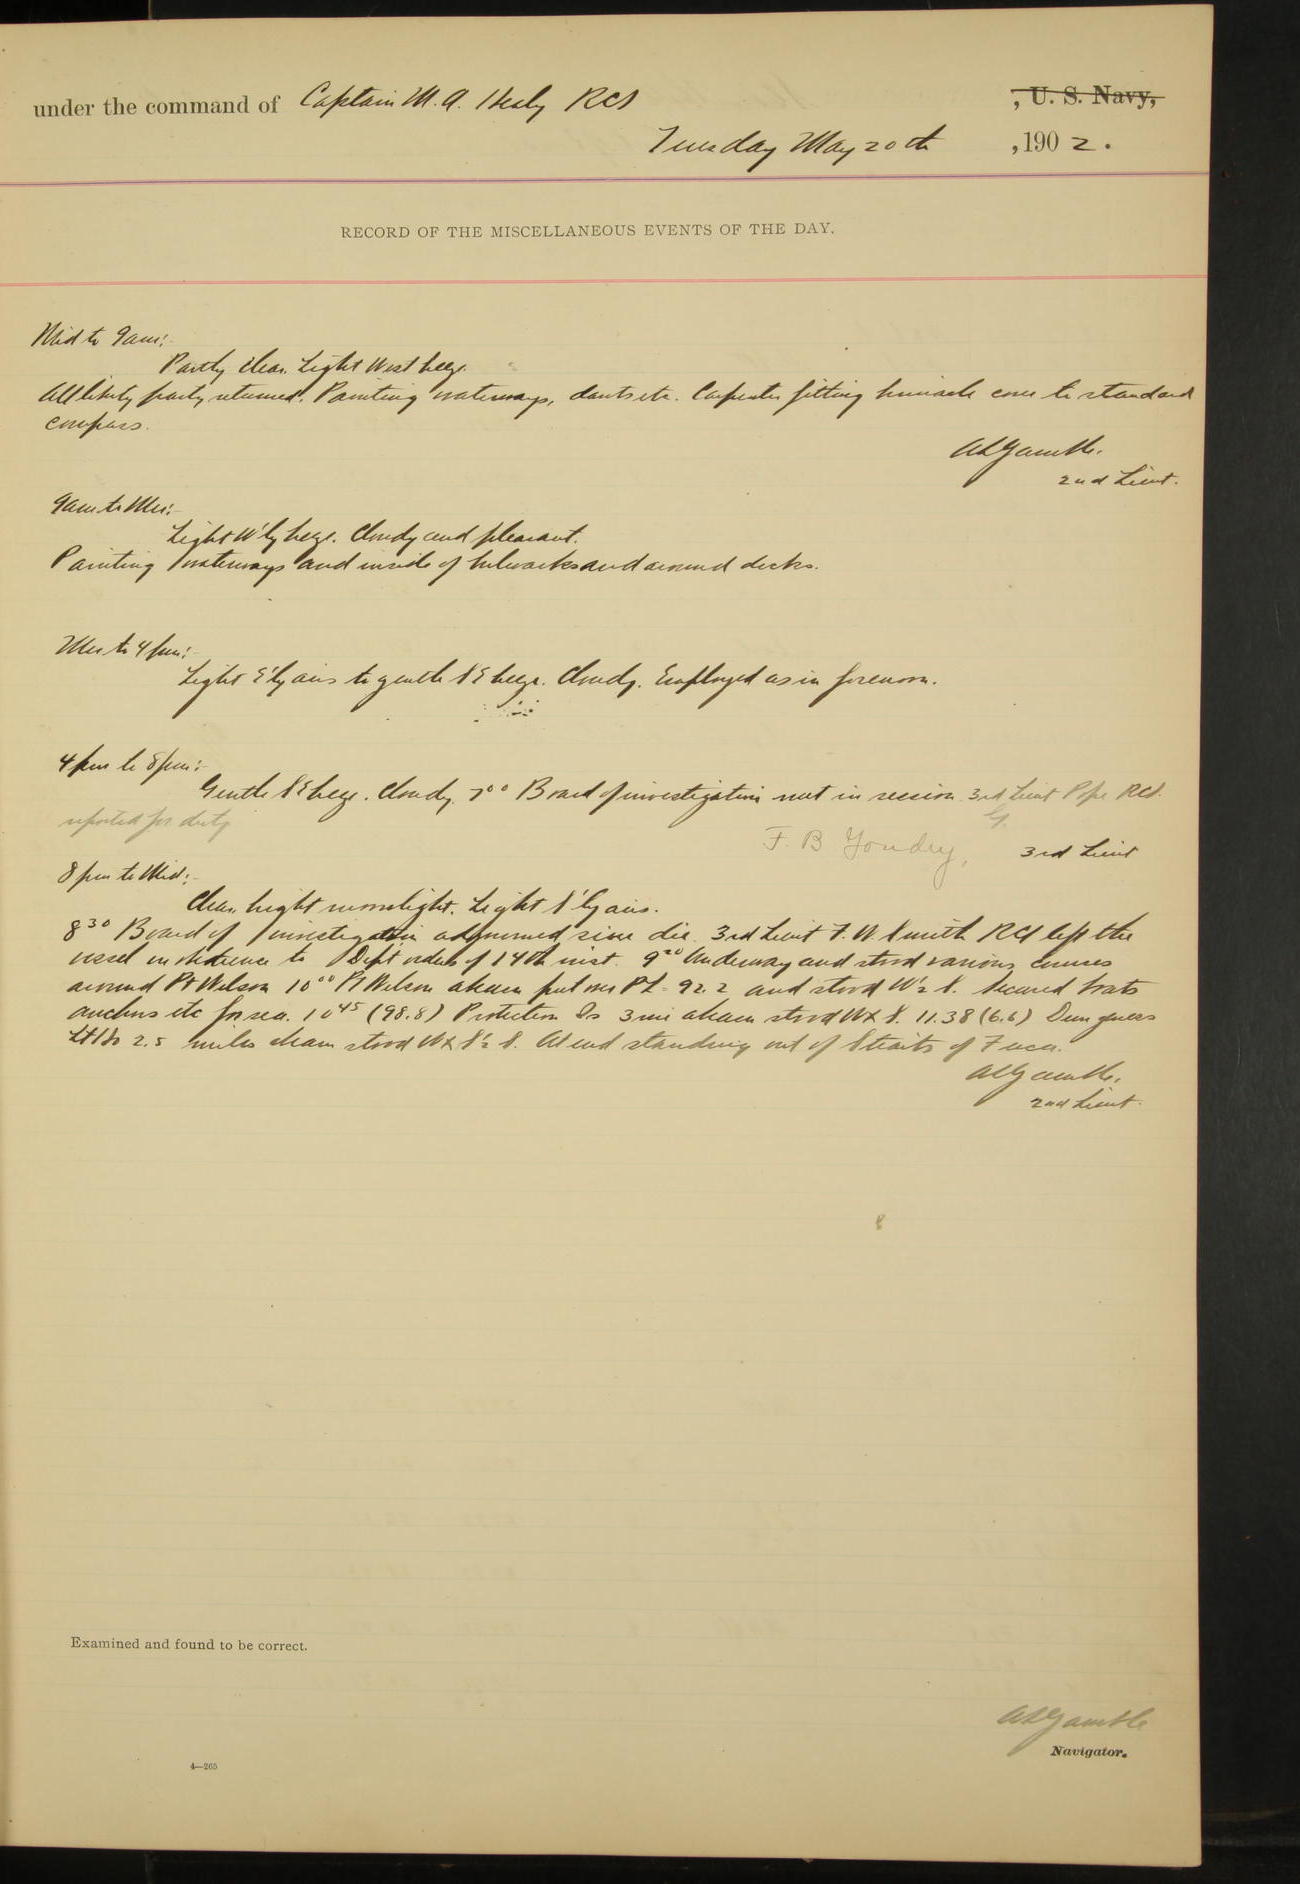 under the command of Captain M. A. Healy RCS , U. S. Navy,
Tuesday May 20th , 1902.
RECORD OF THE MISCELLANEOUS EVENTS OF THE DAY.
Mid to 9am:-
Partly clear. Light West breeze.
All liberty party returned. Painting waterways, davits etc. Carpenter fitting binnacle cover to standard
compass.
A L Gamble.
2nd Lieut.
9am to Mer:-
Light W'ly breeze. Cloudy and pleasant.
Painting waterways and inside of bulwarks and around decks.
Mer to 4 pm:-
Light E'ly airs to gentle SE breeze. Cloudy. Employed as in forenoon.
4 pm to 8 pm:-
Gentle SE breeze. Cloudy. 7 00 Board of investigation met in session. 3rd Lieut Pope RCS.
reported for duty
F. B Goudey, 3rd Lieut
8 pm to Mid:-
Clear, bright moonlight. Light S'ly airs.
8 30 Board of investigation adjourned sine die. 3rd Lieut F. W Smith RCS left the
vessel in obedience to Dept orders of 14th inst. 9 20 Underway and stood various courses
around Pt Wilson 10 00 Pt Wilson abeam put over PL - 92.2 and stood W ½ S. Secured boats
anchors etc for sea. 10 45 (98.8) Protection Is 3 mi abeam stood W x S. 11.38 (6.6) Dungeness
Lt Ho 2.5 miles abeam stood W x S ½ S. At end standing out of Straits of Fuca.
A L Gamble.
2nd Lieut.
Examined and found to be correct.
A L Gamble
Navigator.
4—265